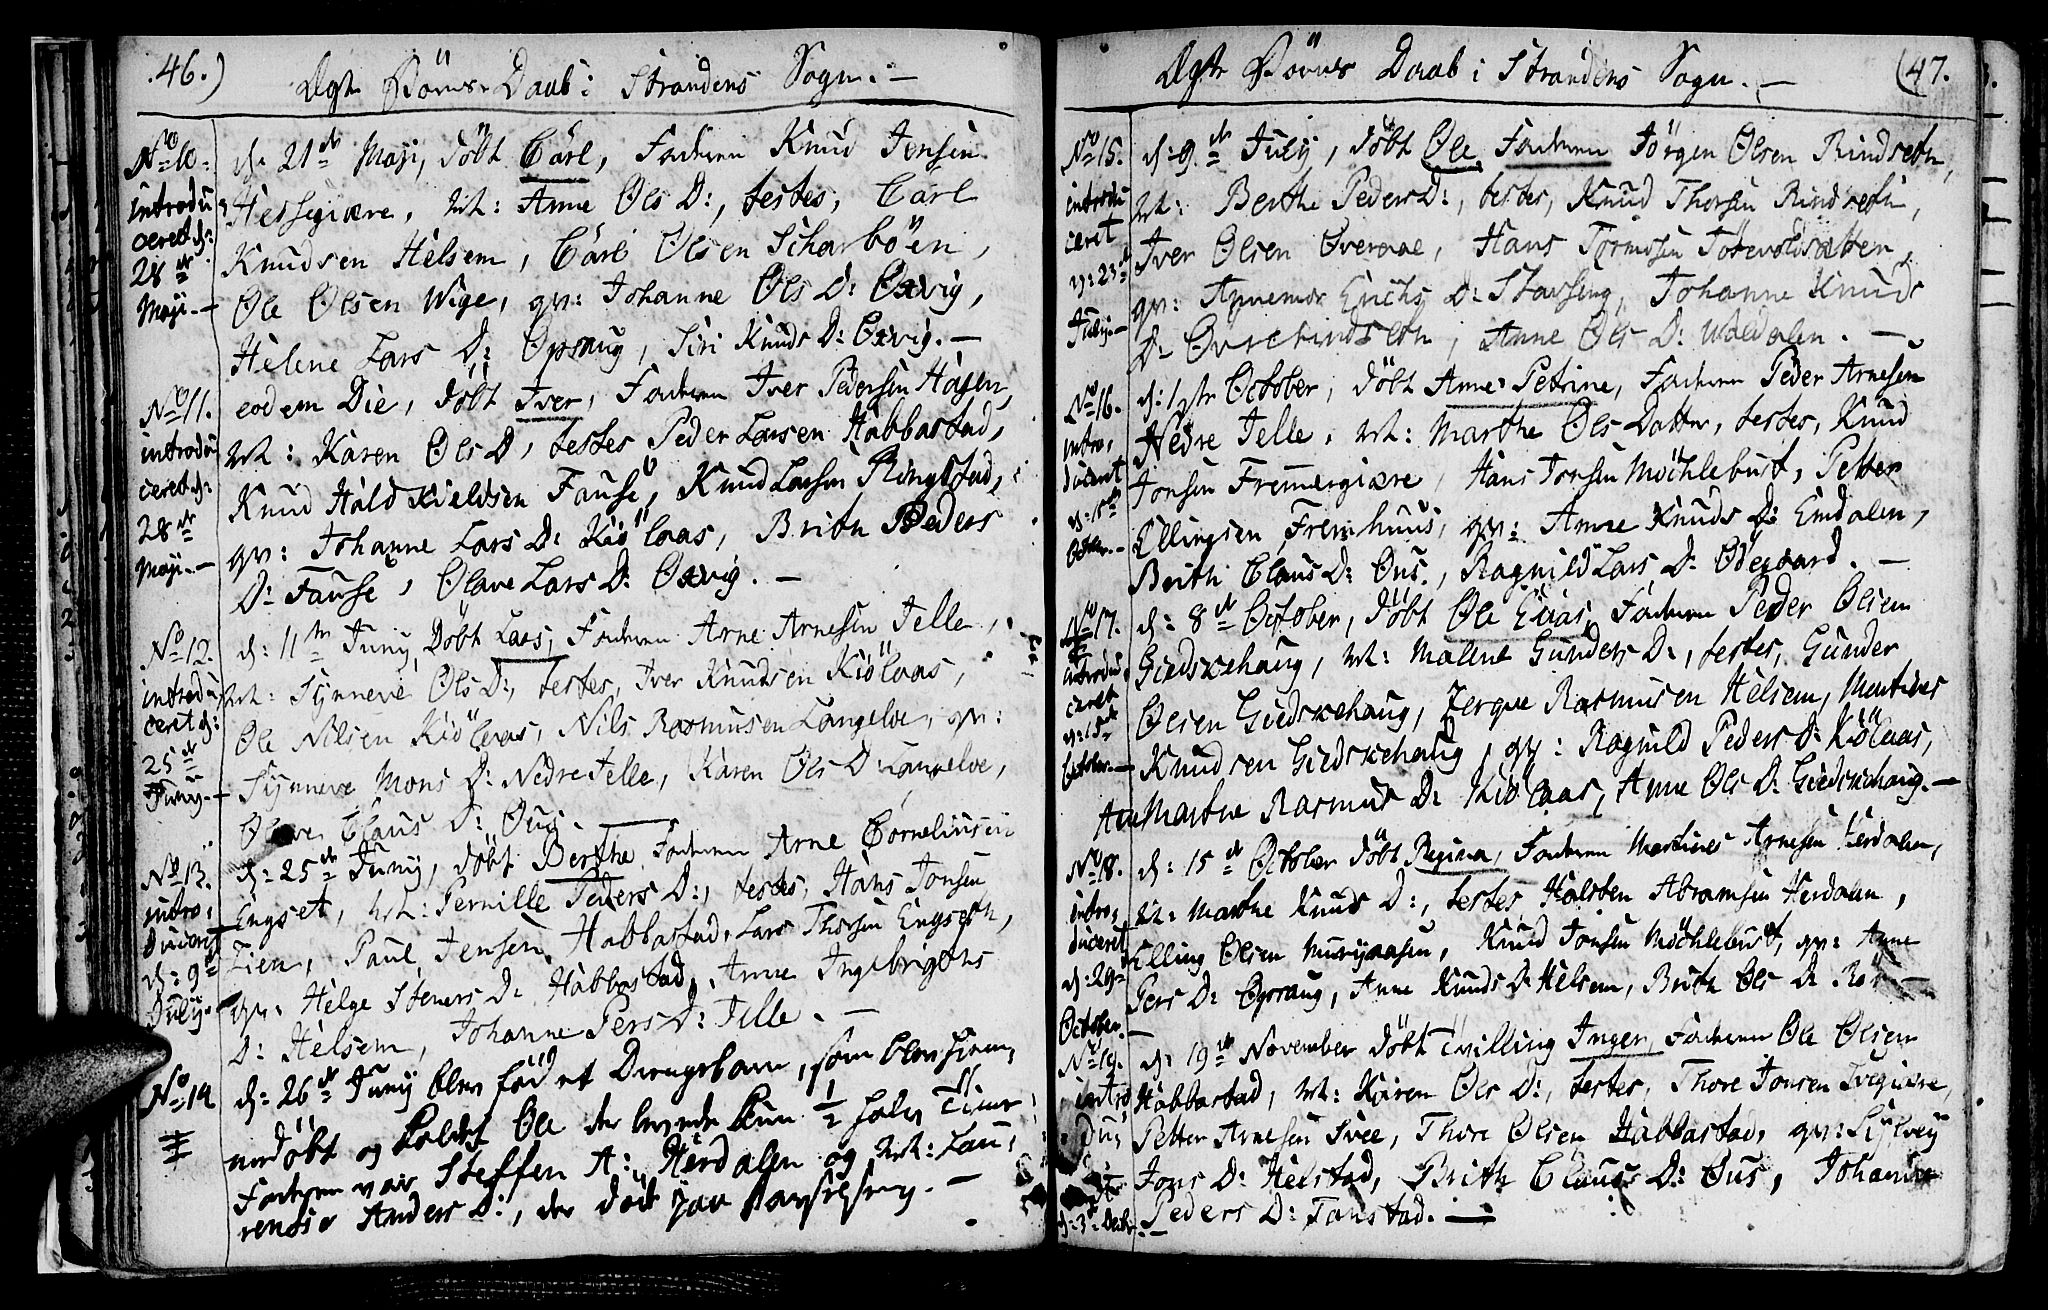 46.)
Ægte Börnes Daab i Strandens Sogn. —
No 10.
introdu
ceret d:
28de
Maji. —
d. 21de Maji, döbt Carl, Faderen Knud Jensen
Hessegiære, M: Anne Ols D:, testes, Carl
Knudsen Helsem, Carl Olsen Scharböen,
Ole Olsen Wige, qv: Johanne Ols D: Oxvig,
Helene Lars D: Opsaug, Siri Knuds D: Oxvig. —
No 11.
introdu
ceret d:
28de
Maji. —
eodem Die, döbt Iver, Faderen Iver Pedersen Hagen,
M: Karen Ols D, testes Peder Larsen Habbastad,
Knud Haldkieldsen Fause, Knud Larsen Ringstad,
qv: Johanne Lars D: Kiölaas, Brith Peders
D: Fause, Olave Lars D: Oxvig. —
No 12.
introdu
ceret d:
25de
Juny. —
d: 11te Juny, Döbt Lars, Faderen Arne Arnesen Jelle,
M: Synneve Ols D:, testes, Iver Knudsen Kiölaas,
Ole Nilsen Kiölaas, Nils Rasmusen Langelve, qv:
Synneve Mons D: Nedre Jelle, Karen Ols D: Langelve,
Olave Claus D: Ous. —
No 13.
intro:
duceret
d: 9de
July. —
d: 25de Juny, döbt Berthe Faderen Arne Cornelinsen
Engset, M: Pernille Peders D:, testes, Hans Jonsen
Lien, Paul Jensen Habbastad, Lars Thorsen Engseth,
qv: Helge Steners D: Habbastad, Anne Ingebrigths
D: Helsem, Johanne Pers D: Jelle. —
No 14
d: 26de Juny blev föd et Drengebarn, som blev hiem,
medöbt og kaldet Ole der levede kun 1/2 halv Time
Faderen var Steffen A: Herdalen og M: Lau,
rense Anders D:, der död

(47.
Ægte Börnes Daab i Strandens Sogn. —
No 15.
introdu
ceret
d: 23de
July. —
d. 9de July, döbt Ole, Faderen Jörgen Olsen Rindseth,
M: Berthe Peders D:, testes, Knud Thorsen Rindseth,
Iver Olsen Overaae, Hans Tormosen Totevoldsætter,
qv: Annemor Erichs D: Stavseng, Johanne Knuds
D: Overrindseth, Anne Ols D: Waldalen. —
No 16.
intro,
duceret
d: 15de
Octbr. —
d: 1ste October, döbt Anne Petrine, Faderen Peder Arnesen
Nedre Jelle, M: Marthe Ols Datter, testes, Knud
Jonsen Fremmergiære, Hans Jonsen Möchlebust, Petter
Ellingsen Fremhuus, qv: Anne Knuds D: Emdalen,
Brith Claus D: Ous, Ragnild Lars D: Ödegaard. —
No 17.
introdu
ceret
d: 15de
October. —
d: 8de October, döbt Ole Elias, Faderen Peder Olsen
Giedschehaug, M: Malene Gunders D:, testes, Gunder
Olsen Giedschehaug, Jerque Rasmusen Helsem, Martines
Knudsen Giedschehaug, qv: Ragnild Peders D: Kiölaas,
Marthe Rasmus D: Kiölaas, Anne Ols D: Giedschehaug. —
No 18.
intro,
duceret
d: 29de
October. —
d: 15de October döbt Regina, Faderen Martines Arnesen Herdalen,
M: Marthe Knuds D:, testes Halsten Abramsen Herdalen,
Elling Olsen Murijaasen, Knud Jonsen Möchlebust, qv: Anne
Pers D: Opsaug, Anne Knuds D: Helsem, Brith Ols D: Rör —
No 19.
intro
du,
d: 3de Decbr. —
d: 19de November döbt Tvilling Inger, Faderen Ole Olsen
Habbastad, M: Karen Ols D:, testes, Thore Jonsen Svegiære,
Petter Arnesen Svee, Thore Olsen Habbastad, qv: Sylvey
Jons D: Helstad, Brith Claus D: Ous, Johanne
Peders D: Tanstad. —